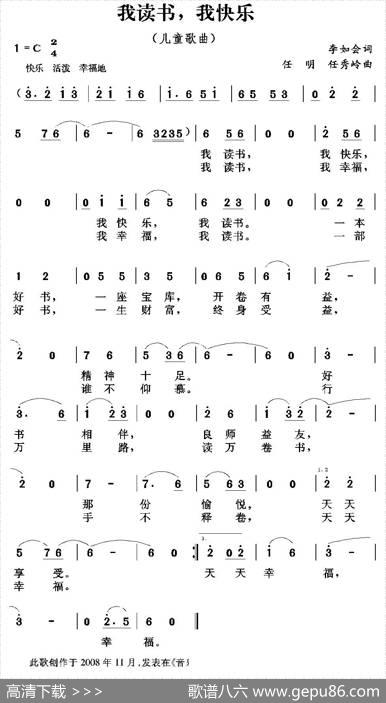 我读书，我快乐
（儿童歌曲）
1=C 2/4
李如会词
快乐 活泼 幸福地
任 明 任秀岭曲
(3. 2 1 3 | 2. 1 6 2 | 1. 6 5 1 | 6. 5 3 5 | 0 2 2 |
5 7 6 | 6 - | 6 3235) | 6 5 6 | 0 0 | 6 5 6 |
我 读书， 我 快乐，
我 读书， 我 幸福，
0 0 | 0 1 1 | 6 5 | 6 5 6 | 0 0 | 0 2 2 |
我 快 乐， 我 读书。 一本
我 幸 福， 我 读书。 一部
1 2 | 0 5 5 | 3 5 | 0 6 5 | 6 1 | 2 - |
好 书， 一 座 宝 库， 开 卷 有 益，
好 书， 一 生 财 富， 终 身 受 益，
2 0 | 7 6 | 5 3 6 | 6 - | 6 0 | 3 - |
精 神 十 足。 好
谁 不 仰 慕。 行
3. 6 | 1 2 3 | 2 0 | 0 0 | 2 6 | 1 3 2 | 2 - |
书 相 伴， 良 师 益 友，
万 里 路， 读 万 卷 书，
2 0 | 7 - | 7. 6 | 2 - | 5 6 3 | 0 0 | 2 2 |
那 份 愉 悦， 天 天
手 不 释 卷， 天 天
5 7 6 | 6 - | 6 0 :| 2 0 2 | 1 6 | 3 - |
享 受。 天 天 幸 福，
幸 福。
3 - | 0 2. 5 | 6 0 ‖
幸 福。
此歌创作于 2008 年 11 月，发表在《音
高清下载 >>>
歌谱八六 www.gepu86.com